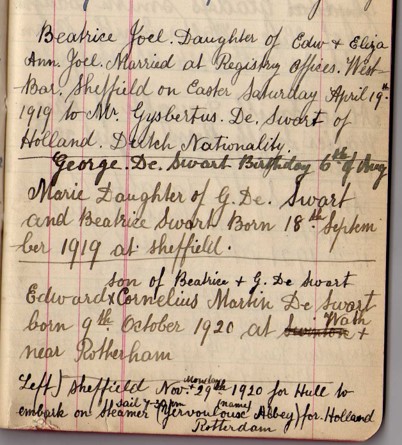 Beatrice Joel. Daughter of Edw + Eliza
Ann. Joel. Married at Registry Offices. West-
Bar. Sheffield on Easter Saturday April 19th
1919 to Mr. Gysbertus. De. Swart of
Holland. Dutch Nationality.
George. De. Swart Birthday 6th of Aug
Marie Daughter of G. De. Swart
and Beatrice Swart Born 18th Septem
ber 1919 at Sheffield.
son of Beatrice + G. De Swart
Edward x Cornelius Martin De Swart
born 9th October 1920 at Wath
near Rotherham
Left) Sheffield Nov. Monday 29th 1920 for Hull to
embark on Steamer (name) Abbey) for Holland
Rotterdam